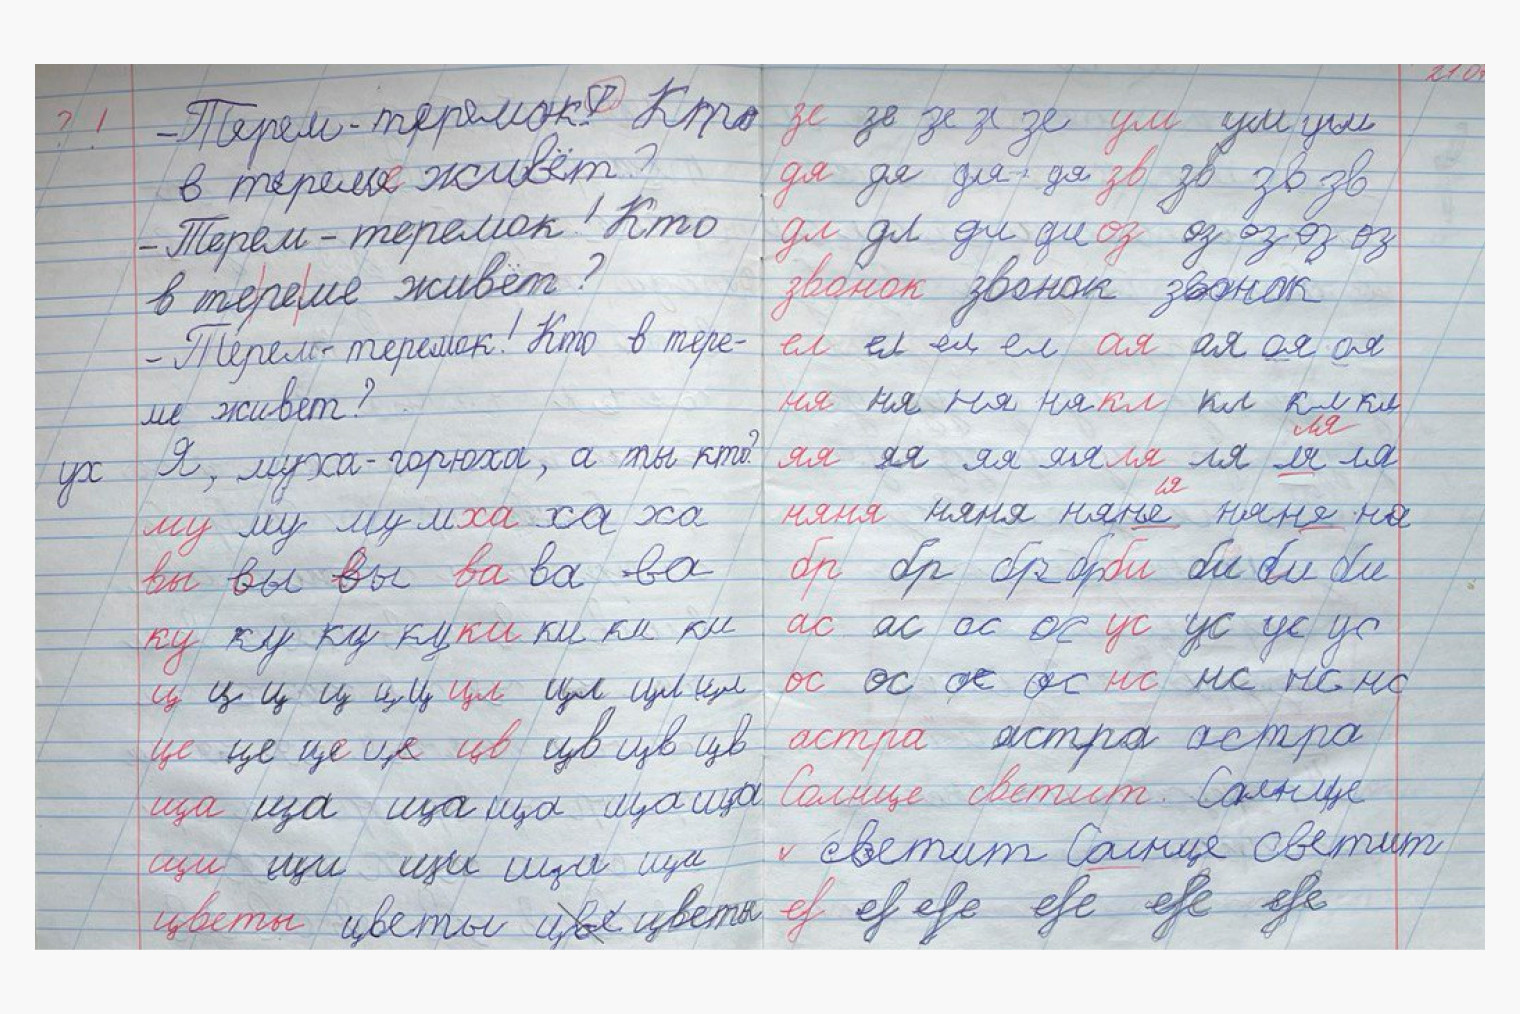 ? ! - Терем - теремок! Кто
в тереме живёт?
- Терем - теремок! Кто
в тереме живёт?
- Терем - теремок! Кто в тере-
ме живет?
ух Я, муха - горюха, а ты кто?
му му му м ха ха ха
вы вы вы ва ва ва
ку ку ку ку ки ки ки ки
ц ц ц ц ц ц цл цл цл цл
це це це це цв цв цв цв
ща ща ща ща ща ща
щи щи щи щи щи
цветы цветы цветы
21.0
зе зе зе зе зе ум ум ум
дя дя дя дя зв зв зв зв
дл дл дл дл оз оз оз оз оз
звонок звонок звонок
ел ел ел ел ая ая ая ая
ня ня ня ня кл кл кл кл
ля
яя яя яя яя ля ля ля ля
ия
няня няня няне няне на
бр бр бр бр би би би би
ас ас ас ас ус ус ус ус
ос ос ос ос нс нс нс нс
астра астра астра
Солнце светит. Солнце
v светит Солнце светит
еf еf efe efe efe efe